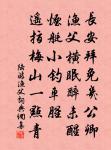 長安拜免幾公卿
漁父橫眠醉未醒
煙艇小釣車腥
遙指梅山一點青
陸游漁父詞與儞集